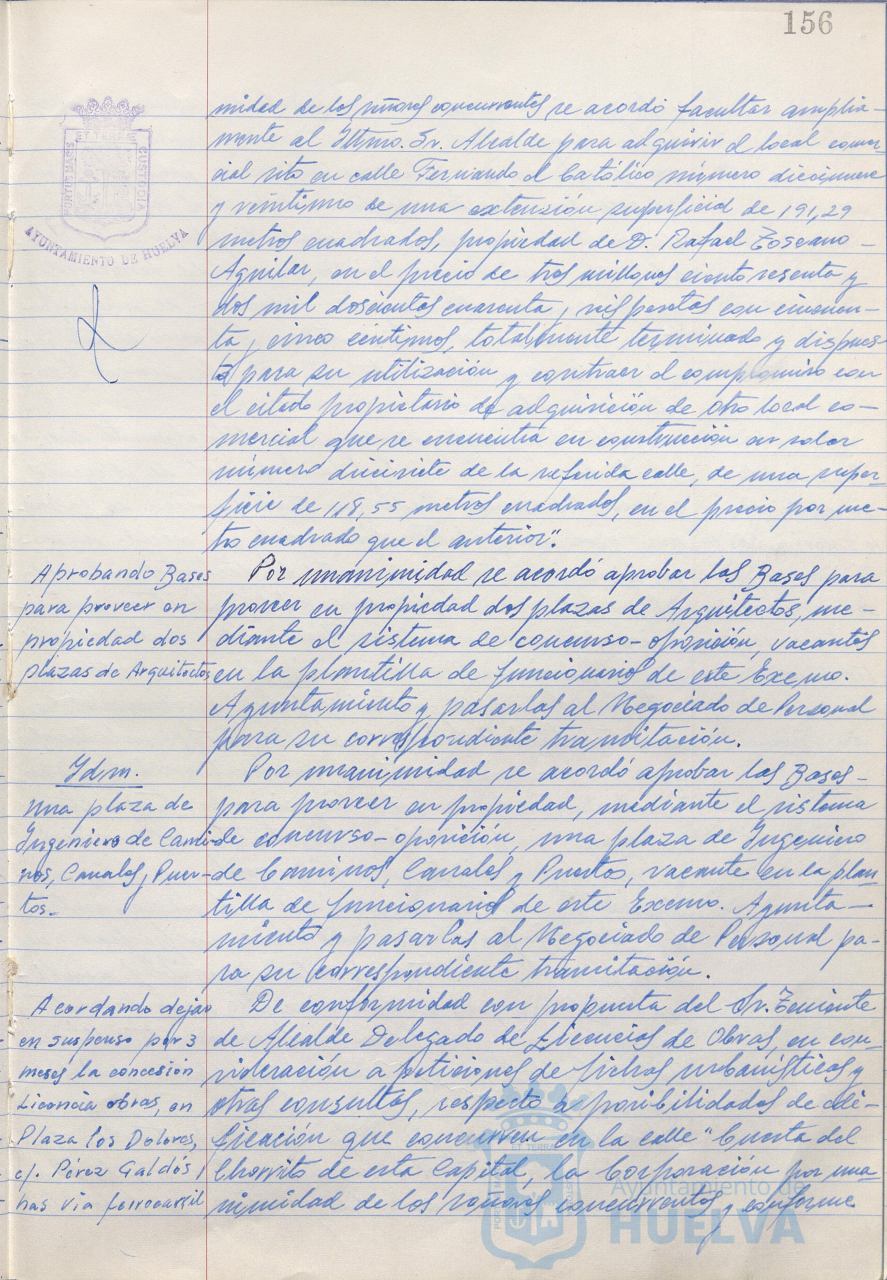 156
PORTUS MARIS ET TERRE CUSTODIA
AYUNTAMIENTO DE HUELVA
midad de los señores concurrentes se acordó facultar amplia-
mente al Iltmo. Sr. Alcalde para adquirir el local comer-
cial sito en calle Fernando el Católico número diecinueve
y veintiuno de una extensión superficial de 191,29
metros cuadrados, propiedad de D. Rafael Toscano-
Aguilar, en el precio de tres millones ciento sesenta y
dos mil doscientos cuarenta y seis pesetas con cincuen-
ta y cinco céntimos, totalmente terminado y dispues-
to para su utilización y contraer el compromiso con
el citado propietario de adquisición de otro local co-
mercial que se encuentra en construcción en solar
número diecisiete de la referida calle, de una super-
ficie de 118,55 metros cuadrados, en el precio por me-
tro cuadrado que el anterior".
Aprobando Bases
para proveer en
propiedad dos
plazas de Arquitectos
Por unanimidad se acordó aprobar las Bases para
proveer en propiedad dos plazas de Arquitectos, me-
diante el sistema de concurso-oposición, vacantes
en la plantilla de funcionarios de este Excmo.
Ayuntamiento y pasarlas al Negociado de Personal
para su correspondiente tramitación.
Idm.
una plaza de
Ingeniero de Cami-
nos, Canales y Puer-
tos.-
Por unanimidad se acordó aprobar las Bases-
para proveer en propiedad, mediante el sistema
de concurso-oposición, una plaza de Ingeniero
de Caminos, Canales y Puertos, vacante en la plan-
tilla de funcionarios de este Excmo. Ayunta-
miento y pasarlas al Negociado de Personal pa-
ra su correspondiente tramitación.
Acordando dejar
en suspenso por 3
meses la concesión
Licencia obras, en
Plaza los Dolores,
c/. Pérez Galdós
has vía ferrocarril
De conformidad con propuesta del Sr. Teniente
de Alcalde Delegado de Licencias de Obras, en con-
sideración a peticiones de fichas urbanísticas y
otras consultas, respecto a posibilidades de edi-
ficación que concurren en la calle "Cuesta del
Chorrito de esta Capital, la Corporación por una-
nimidad de los señores concurrentes y conforme
Ayuntamiento de
HUELVA